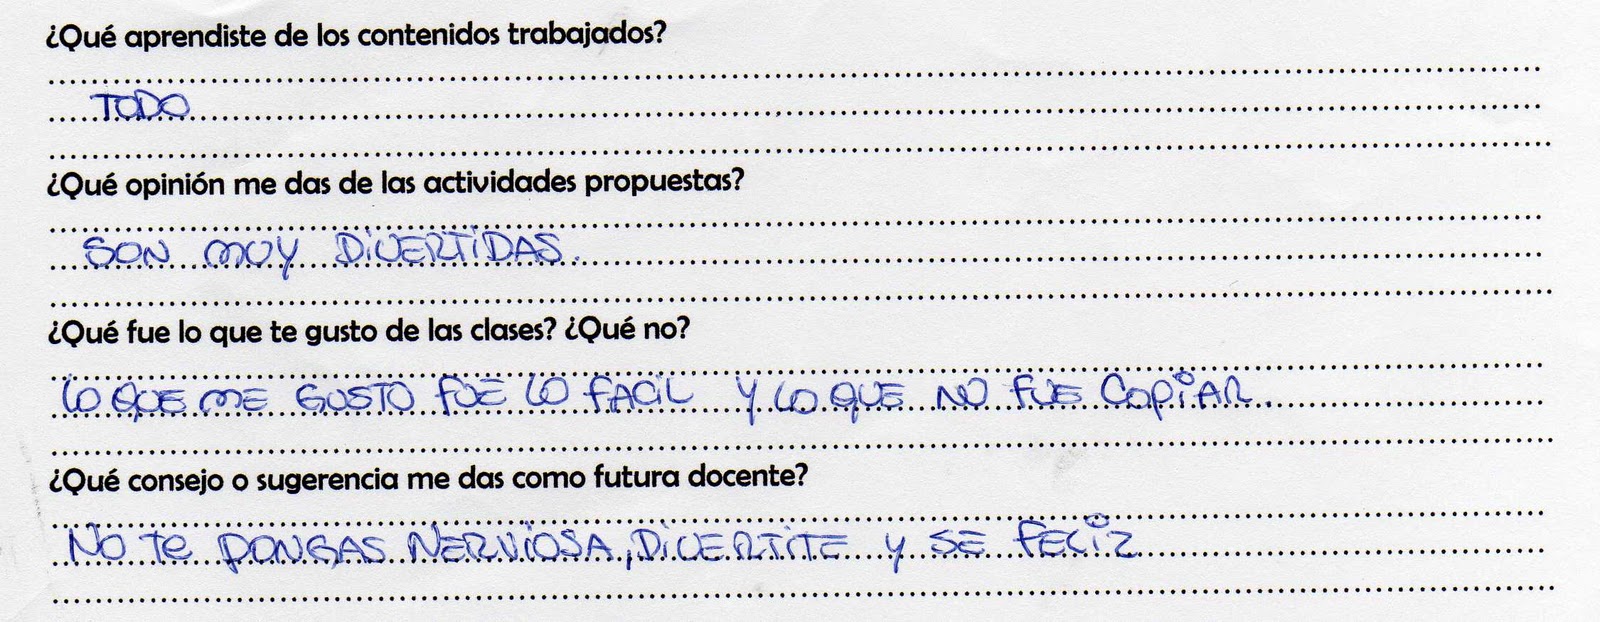 ¿Qué aprendiste de los contenidos trabajados?
TODO
¿Qué opinión me das de las actividades propuestas?
SON MUY DIVERTIDAS.
¿Qué fue lo que te gusto de las clases? ¿Qué no?
LO QUE ME GUSTO FUE LO FACIL Y LO QUE NO FUE COPIAR.
¿Qué consejo o sugerencia me das como futura docente?
NO TE PONGAS NERVIOSA, DIVERTITE Y SE FELIZ